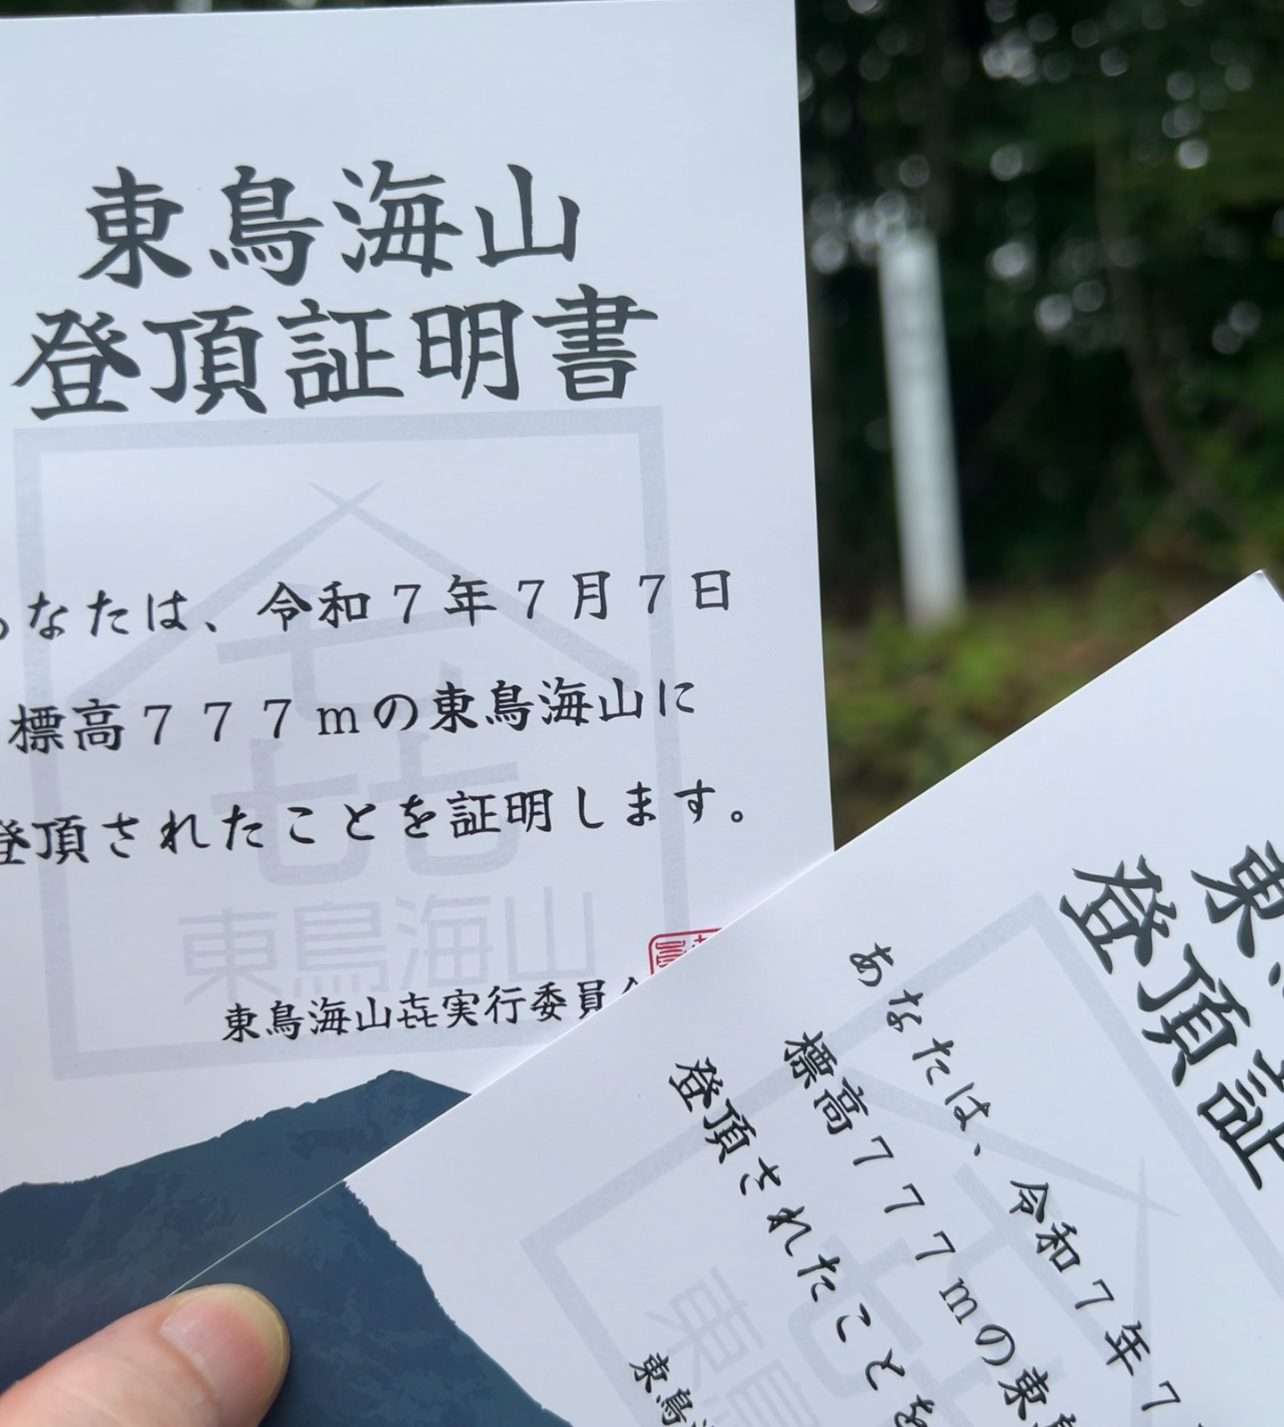 東鳥海山
登頂証明書
あなたは、令和７年７月７日
標高７７７ｍの東鳥海山に
登頂されたことを証明します。
㐂
東鳥海山
東鳥海山㐂実行委員会
東
登頂証
あなたは、令和７年７
標高７７７ｍの東
登頂されたことを
東鳥
東鳥